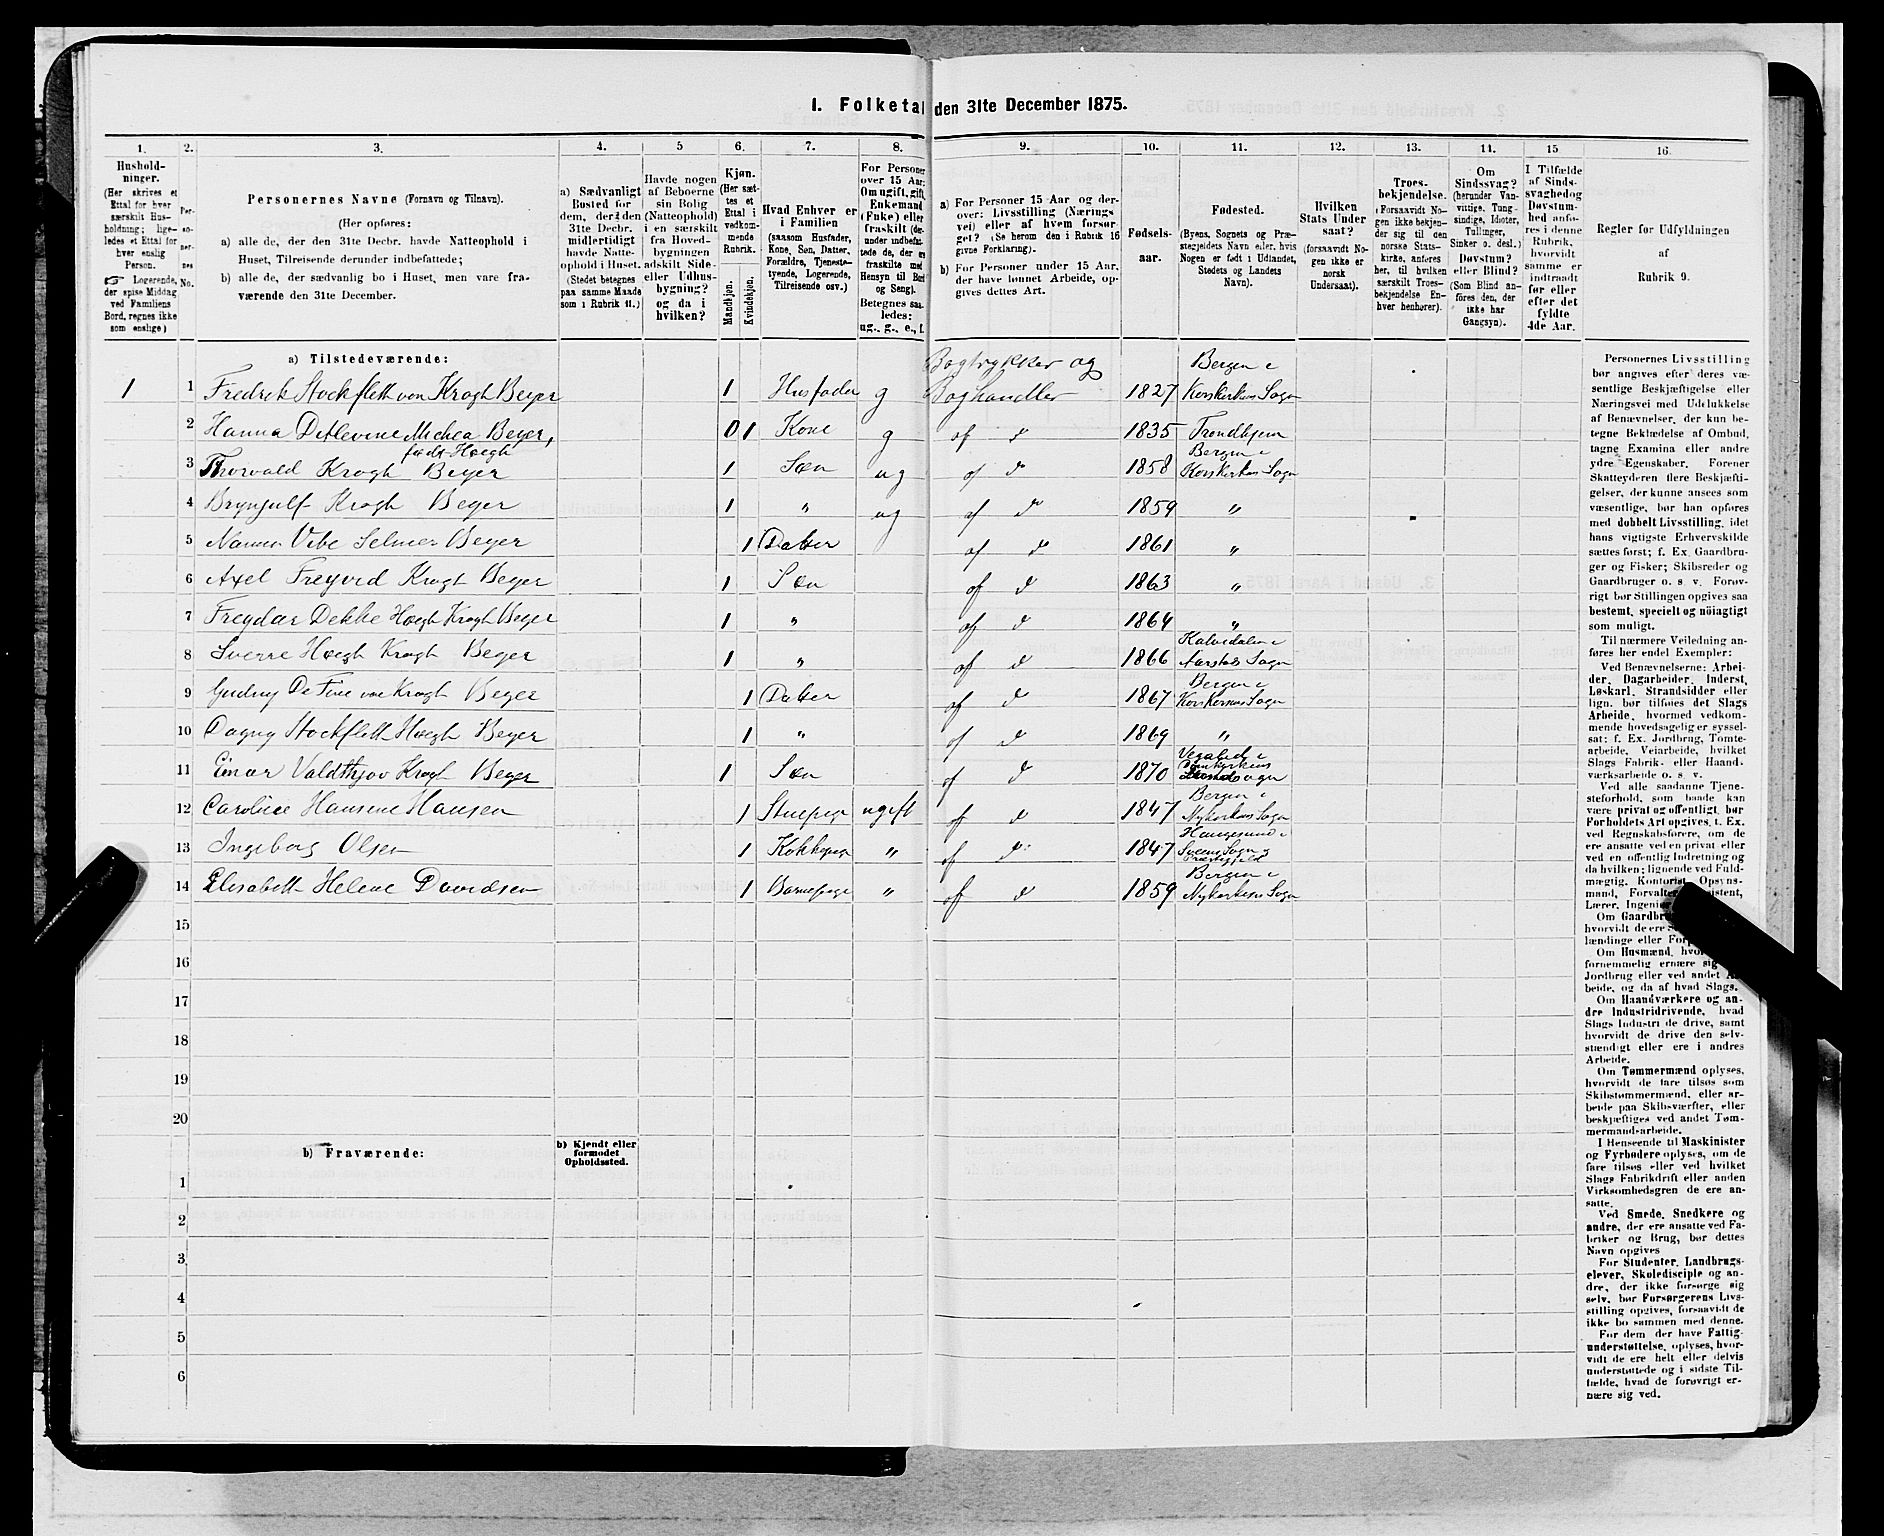 1. Folketal den 31te December 1875.
1.
Hushold-
ninger.
(Her skrives et
Ettal for hver
særskilt Hus-
holdning; lige-
ledes et Ettal for
hver enslig
Person.
☞ Logerende,
der spise Middag
ved Familiens
Bord, regnes ikke
som enslige)
2.
Per-
so-
ner-
nes
No.
3.
Personernes Navne (Fornavn og Tilnavn).
(Her opføres:
a) alle de, der den 31te Decbr. havde Natteophold i
Huset, Tilreisende derunder indbefattede;
b) alle de, der sædvanlig bo i Huset, men vare fra-
værende den 31te December.
4.
a) Sædvanligt
Bosted for
dem, der den
31te Decbr.
midlertidigt
havde Natte-
ophold i Huset.
(Stedet betegnes
paa samme Maade
som i Rubrik 11.)
5
Havde nogen
af Beboerne
sin Bolig
(Natteophold)
i en særskilt
fra Hoved-
bygningen
adskilt Side-
eller Udhus-
bygning?
og da i
hvilken?
6.
Kjøn.
(Her sæt-
tes et
Ettal i
vedkom-
mende
Rubrik.
Mandkjøn.
Kvindekjøn.
7.
Hvad Enhver er
i Familien
(saasom Husfader,
Kone, Søn, Datter,
Forældre, Tjeneste-
tyende, Logerende,
Tilreisende osv.)
8.
For Personer
over 15 Aar:
Om ugift, gift,
Enkemand
(Enke) eller
fraskilt (der-
under indbefat-
tede de, der ere
fraskilte med
Hensyn til Bord
og Seng).
Betegnes saa-
ledes:
ug., g., e., f.
9.
a) For Personer 15 Aar og der-
over: Livsstilling (Nærings
vei) eller af hvem forsør-
get? (Se herom den i Rubrik 16
givne Forklaring).
b) For Personer under 15 Aar,
der have lønnet Arbeide, op-
gives dettes Art.
10.
Fødsels-
aar.
11.
Fødested.
(Byens, Sognets og Præ-
stegjeldets Navn eller, hvis
Nogen er født i Udlandet,
Stedets og Landets
Navn).
12.
Hvilken
Stats Under
saat?
(forsaavidt No-
gen ikke er
norsk
Undersaat).
13.
Troes-
bekjendelse.
(Forsaavidt No-
gen ikke bekjen-
der sig til den
norske Stats-
kirke, anføres
her, til hvilken
særskilt Troes-
bekjendelse En-
hver henhører).
14.
Om
Sindssvag?
(herunder Van-
vittige, Tung-
sindige, Idioter,
Sinker o. desl.)
Døvstum?
eller Blind?
(Som Blind an-
føres den, der
ikke har
Gangsyn).
15
I Tilfælde
af Sinds-
svaghed og
Døvstum-
hed anfø-
res i denne
Rubrik,
hvorvidt
samme er
indtraadt
før eller
efter det
fyldte
4de Aar.
16.
Regler for Udfyldningen
af
Rubrik 9.
a) Tilstedeværende:
Bogtrykker og Bergen i
1 1 Fredrik Stockfleth von Krogh Beyer 1 Husfader g Boghandler 1827 Korskirkens Sogn
2 Hanna Detlevine Michea Beyer, 0 1 Kone g af d 1835 Trondhjem
født Høegh Bergen i
3 Thorvald Krogh Beyer 1 Søn ug af d 1858 Korskirkens Sogn
4 Brynjulf Krogh Beyer 1 " ug af d 1859 "
5 Nanna Vibe Selmer Beyer 1 Datter af d 1861 "
6 Axel Freyvid Krogh Beyer 1 Søn af d 1863 "
7 Freydar Dekke Høegh Krogh Beyer 1 " af d 1864 "
Kalvedalen i
8 Sverre Høegh Krogh Beyer 1 " af d 1866 Aarstads Sogn
Bergen i
9 Gudny De Fine von Krogh Beyer 1 Datter af d 1867 Korskirkens Sogn
10 Dagny Stockfleth Høegh Beyer 1 " af d 1869 "
Domkirkens
11 Einar Valdthjov Krogh Beyer 1 Søn af d 1870
Bergen i
12 Caroline Hansine Hansen 1 Stuepige ugift af d 1847 Nykirkens Sogn
Haugesund i
13 Ingeborg Olsen 1 Kokkepige " af d 1847 Sveens Sogn og
Præstegjeld
Bergen i
14 Elisabeth Helene Davidsen 1 Barnepige " af d 1859 Nykirkens Sogn
15
16
17
18
19
20
b) Fraværende:
b) Kjendt eller
formodet
Opholdssted.
1
2
3
4
5
6
Personernes Livsstilling
bør angives efter deres væ-
sentlige Beskjæftigelse eller
Næringsvei med Udelukkelse
af Benævnelser, der kun be-
tegne Beklædelse af Ombud,
tagne Examina eller andre
ydre Egenskaber. Forener
Skatteyderen flere Beskjæfti-
gelser, der kunne ansees som
væsentlige, bør han opføres
med dobbelt Livsstilling, idet
hans vigtigste Erhvervskilde
sættes først; f. Ex. Gaardbru-
ger og Fisker; Skibsreder og
Gaardbruger o. s. v. Forøv-
rigt bør Stillingen opgives saa
bestemt, specielt og nöiagtigt
som muligt.
Til nærmere Veiledning an-
føres her endel Exempler:
Ved Benævnelserne: Arbei-
der, Dagarbeider, Inderst,
Løskarl, Strandsidder eller
lign. bør tilføies det Slags
Arbeide, hvormed vedkom-
mende hovedsagelig er syssel-
sat; f. Ex. Jordbrug, Tomte-
arbeide, Veiarbeide, hvilket
Slags Fabrik- eller Haand-
værksarbeide o. s. v.
Ved alle saadanne Tjene-
steforhold, som baade kan
være privat og offentligt, bør
Forholdets Art opgives, t. Ex.
ved Regnskabsførere, om de
ere ansatte ved en privat eller
ved en offentlig Indretning og
da hvilken; lignende ved Fuld-
mægtig, Kontorist, Opsyns-
mand, Forvalter, Assistent,
Lærer, Ingeniør
Om Gaardbru
hvorvidt de ere S
lændinge eller For
Om Husmænd, hvor
fornemmelig ernære sig
Jordbrug eller ved andet Ar-
beide, og da af hvad Slags.
Om Haandværkere og an-
dre Industridrivende, hvad
Slags Industri de drive, samt
hvorvidt de drive den selv-
stændigt eller ere i andres
Arbeide.
Om Tømmermænd oplyses,
hvorvidt de fare tilsøs som
Skibstømmermænd, eller ar-
beide paa Skibsværfter, eller
beskjæftiges ved andet Tøm-
mermandsarbeide.
I Henseende til Maskinister
og Fyrbødere oplyses, om de
fare tilsøs eller ved hvilket
Slags Fabrikdrift eller anden
Virksomhedsgren de ere an-
satte.
Ved Smede, Snedkere og
andre, der ere ansatte ved Fa-
briker og Brug, bør dettes
Navn opgives
For Studenter, Landbrugs-
elever, Skoledisciple og an-
dre, der ikke forsørge sig
selv, bør Forsørgerens Livs-
stilling opgives, forsaavidt de
ikke bo sammen med denne.
For dem, der have Fattig-
understøttelse, oplyses, hvor-
vidt de ere helt eller delvis
understøttede og i sidste Til-
fælde, hvad de forøvrigt er-
nære sig ved.